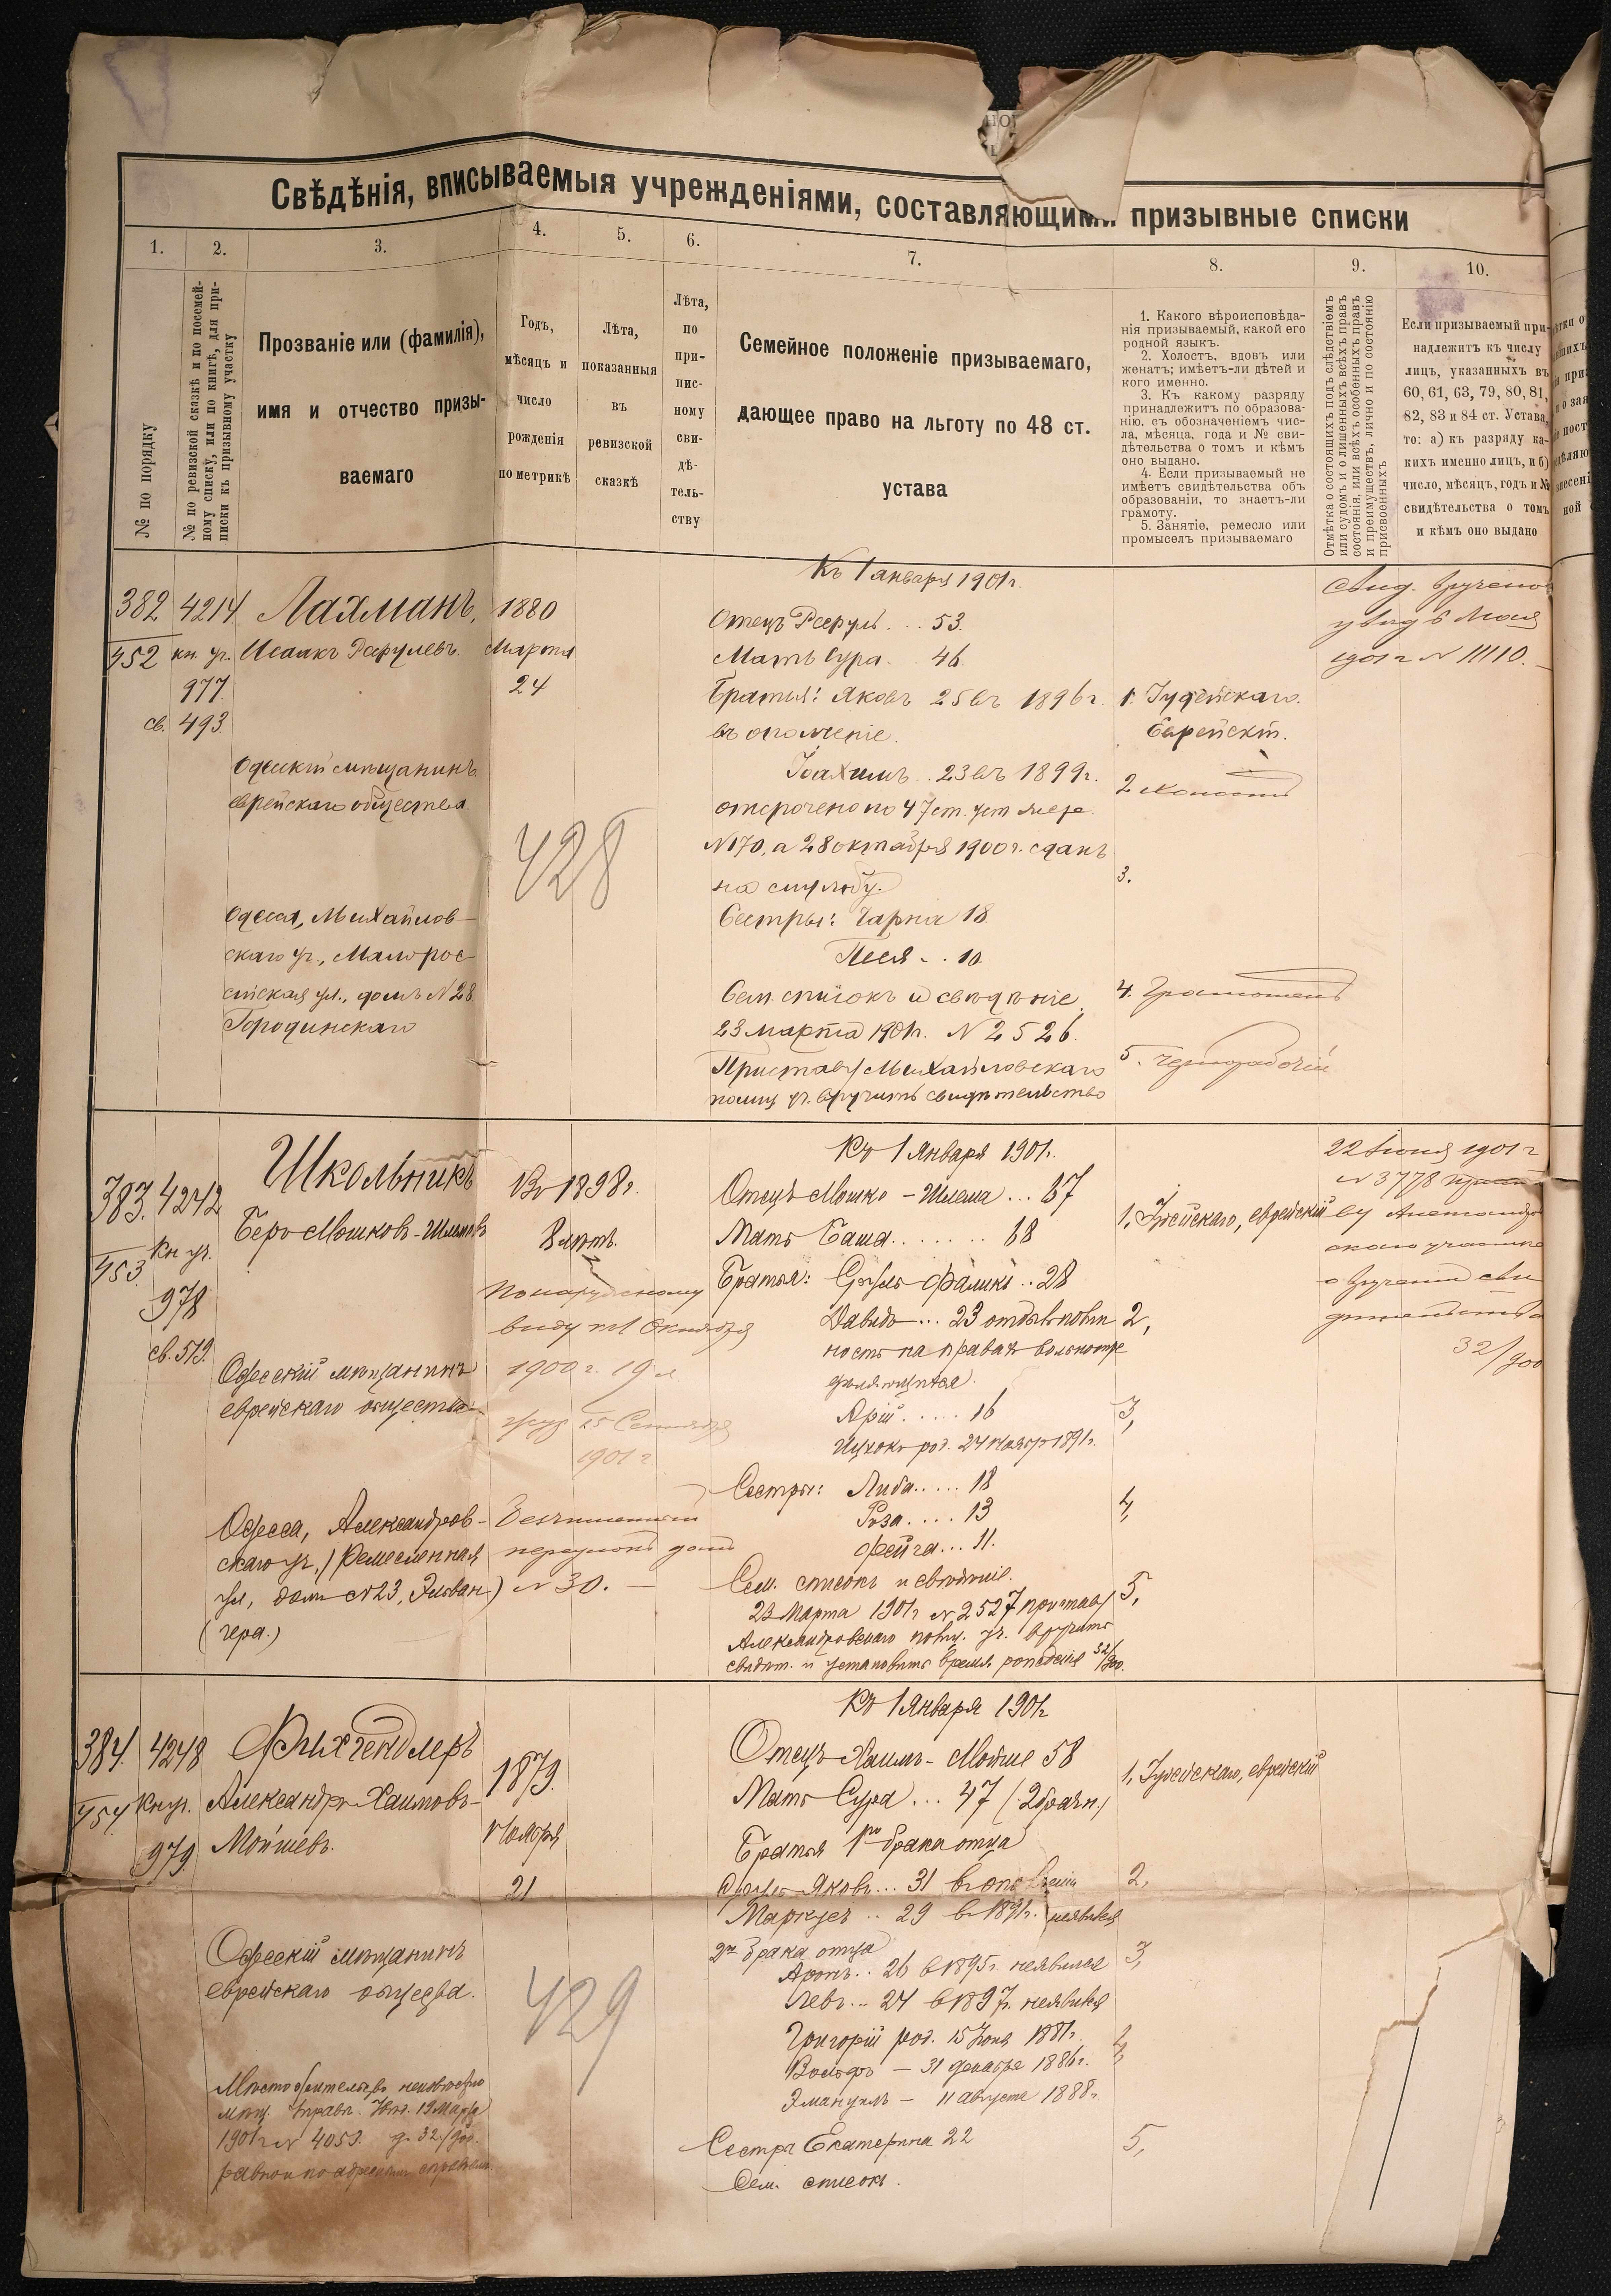 Свѣдѣнія, вписываемыя учрежденіями, составляющими призывные списки
1.
2.
3.
4.
5.
6.
7.
8.
9.
10.
№ по порядку
№ по ревизской сказкѣ и по посемей-
ному списку, или по книгѣ, для при-
писки къ призывному участку
Прозваніе или (фамилія),
имя и отчество призы-
ваемаго
Годъ,
мѣсяцъ и
число
рожденія
по метрикѣ
Лѣта,
показанныя
въ
ревизской
сказкѣ
Лѣта,
по
при-
пис-
ному
сви-
дѣ-
тель-
ству
Семейное положеніе призываемаго,
дающее право на льготу по 48 ст.
устава
1. Какого вѣроисповѣда-
нія призываемый, какой его
родной языкъ.
2. Холостъ, вдовъ или
женатъ; имѣетъ-ли дѣтей и
кого именно.
3. Къ какому разряду
принадлежитъ по образова-
нію, съ обозначеніемъ чис-
ла, мѣсяца, года и № сви-
дѣтельства о томъ и кѣмъ
оно выдано.
4. Если призываемый не
имѣетъ свидѣтельства объ
образованіи, то знаетъ-ли
грамоту.
5. Занятіе, ремесло или
промыселъ призываемаго
Отмѣтка о состоящихъ подъ слѣдствіемъ
или судомъ и о лишенныхъ всѣхъ правъ
состоянія, или всѣхъ особенныхъ правъ
и преимуществъ, лично и по состоянію
присвоенныхъ
Если призываемый при-
надлежитъ къ числу
лицъ, указанныхъ въ
60, 61, 63, 79, 80, 81,
82, 83 и 84 ст. Устава,
то: а) къ разряду ка-
кихъ именно лицъ, и б)
число, мѣсяцъ, годъ и №
свидѣтельства о томъ
и кѣмъ оно выдано
382
452
4214
кн. уч.
977
св. 493
Лахманъ,
Исаакъ Рафулевъ.
Одесскій мѣщанинъ
еврейскаго общества.
Одесса, Михайлов-
скаго уч., Малорос-
сійская ул., домъ N 28
Городинскаго
1880
Марта
24
428
Къ 1 января 1901 г.
Отецъ Рафулъ... 53.
Мать Сура.. 46.
Братья: Яковъ 25 въ 1896 г.
въ ополченіе.
Іоахимъ.. 23 въ 1899 г.
отсрочено по 47 ст. уст
N 170, а 28 октября 1900 г. сданъ
на службу.
Сестры: Чарна 18
Песя -. 10
Сем. списокъ и свѣдѣніе
23 марта 1901 г. N 2526.
Приставу Михайловскаго
полиц. уч. вручить свидѣтельство
1. Іудейскаго.
Еврейскій.
2 холостъ
3.
4. Грамотенъ
5. Чернорабочій
свид. вручено
увѣд 6 Мая
1901 г N 11110.
383.
453
4242
Кн уч.
978
св. 519.
Школьникъ
Беръ Мошковъ-Шлемовъ
Одесскій мѣщанинъ
еврейскаго общества
Одесса, Александров-
скаго уч., Ремесленная
ул, домъ N 23,
Въ 1898 г.
8 лѣтъ.
По наружному
виду къ 1 Октября
1900 г. 19 л
25 Сентября
1901 г
переулокъ домъ
N 30. —
Къ 1 Января 1901 г.
Отецъ Мошко-Шлема... 67
Мать Баша....... 68
Братья: Сруль Фаликъ.. 28
Давидъ... 23 отбылъ повин
ность на правахъ вольноопре
дѣляющагося.
Арій..... 16
Ицхокъ род. 24 Ноября 1891 г.
Сестры: Либа..... 18
Роза.... 13
Фейга... 11.
Сем. списокъ и свѣдѣніе.
23 Марта 1901 г N 2527 приставу
Александровскаго полиц. уч. вручить
свидѣт. и установить время рожденія 32/900.
1, Іудейскаго, еврейскій
2,
3,
4,
5,
22 Іюня 1901 г
N 3778
ву Александров
скаго участка
о врученіи сви
дѣтельства
32/900
384.
454
4248
Кн уч.
979.
Фихгендлеръ
Александръ Хаимовъ-
Мойшевъ.
Одесскій мѣщанинъ
еврейскаго общества.
Мѣстожительство неизвѣстно
мѣщ. Управ. 19 Марта
1901 г N 4059. д. 32/900.
1879.
Ноября
21
429
Къ 1 Января 1901 г
Отецъ Хаимъ-Мойше 58
Мать Сура... 47 (2 брачн.)
Братья 1го брака отца
Яковъ... 31 въ ополченіи
Маркусъ.. 29 въ 1891 г. неявился
2го брака отца
Аронъ.. 26 в 1895 г. неявился
Левъ... 24 в 1897 г. неявился
Григорій род. 15 Іюня 1881 г.
Вольфъ — 31 декабря 1886 г.
Эмануилъ — 11 августа 1888 г
Сестра Екатерина 22
Сем. списокъ.
1, Іудейскаго, еврейскій
2,
3,
4,
5,